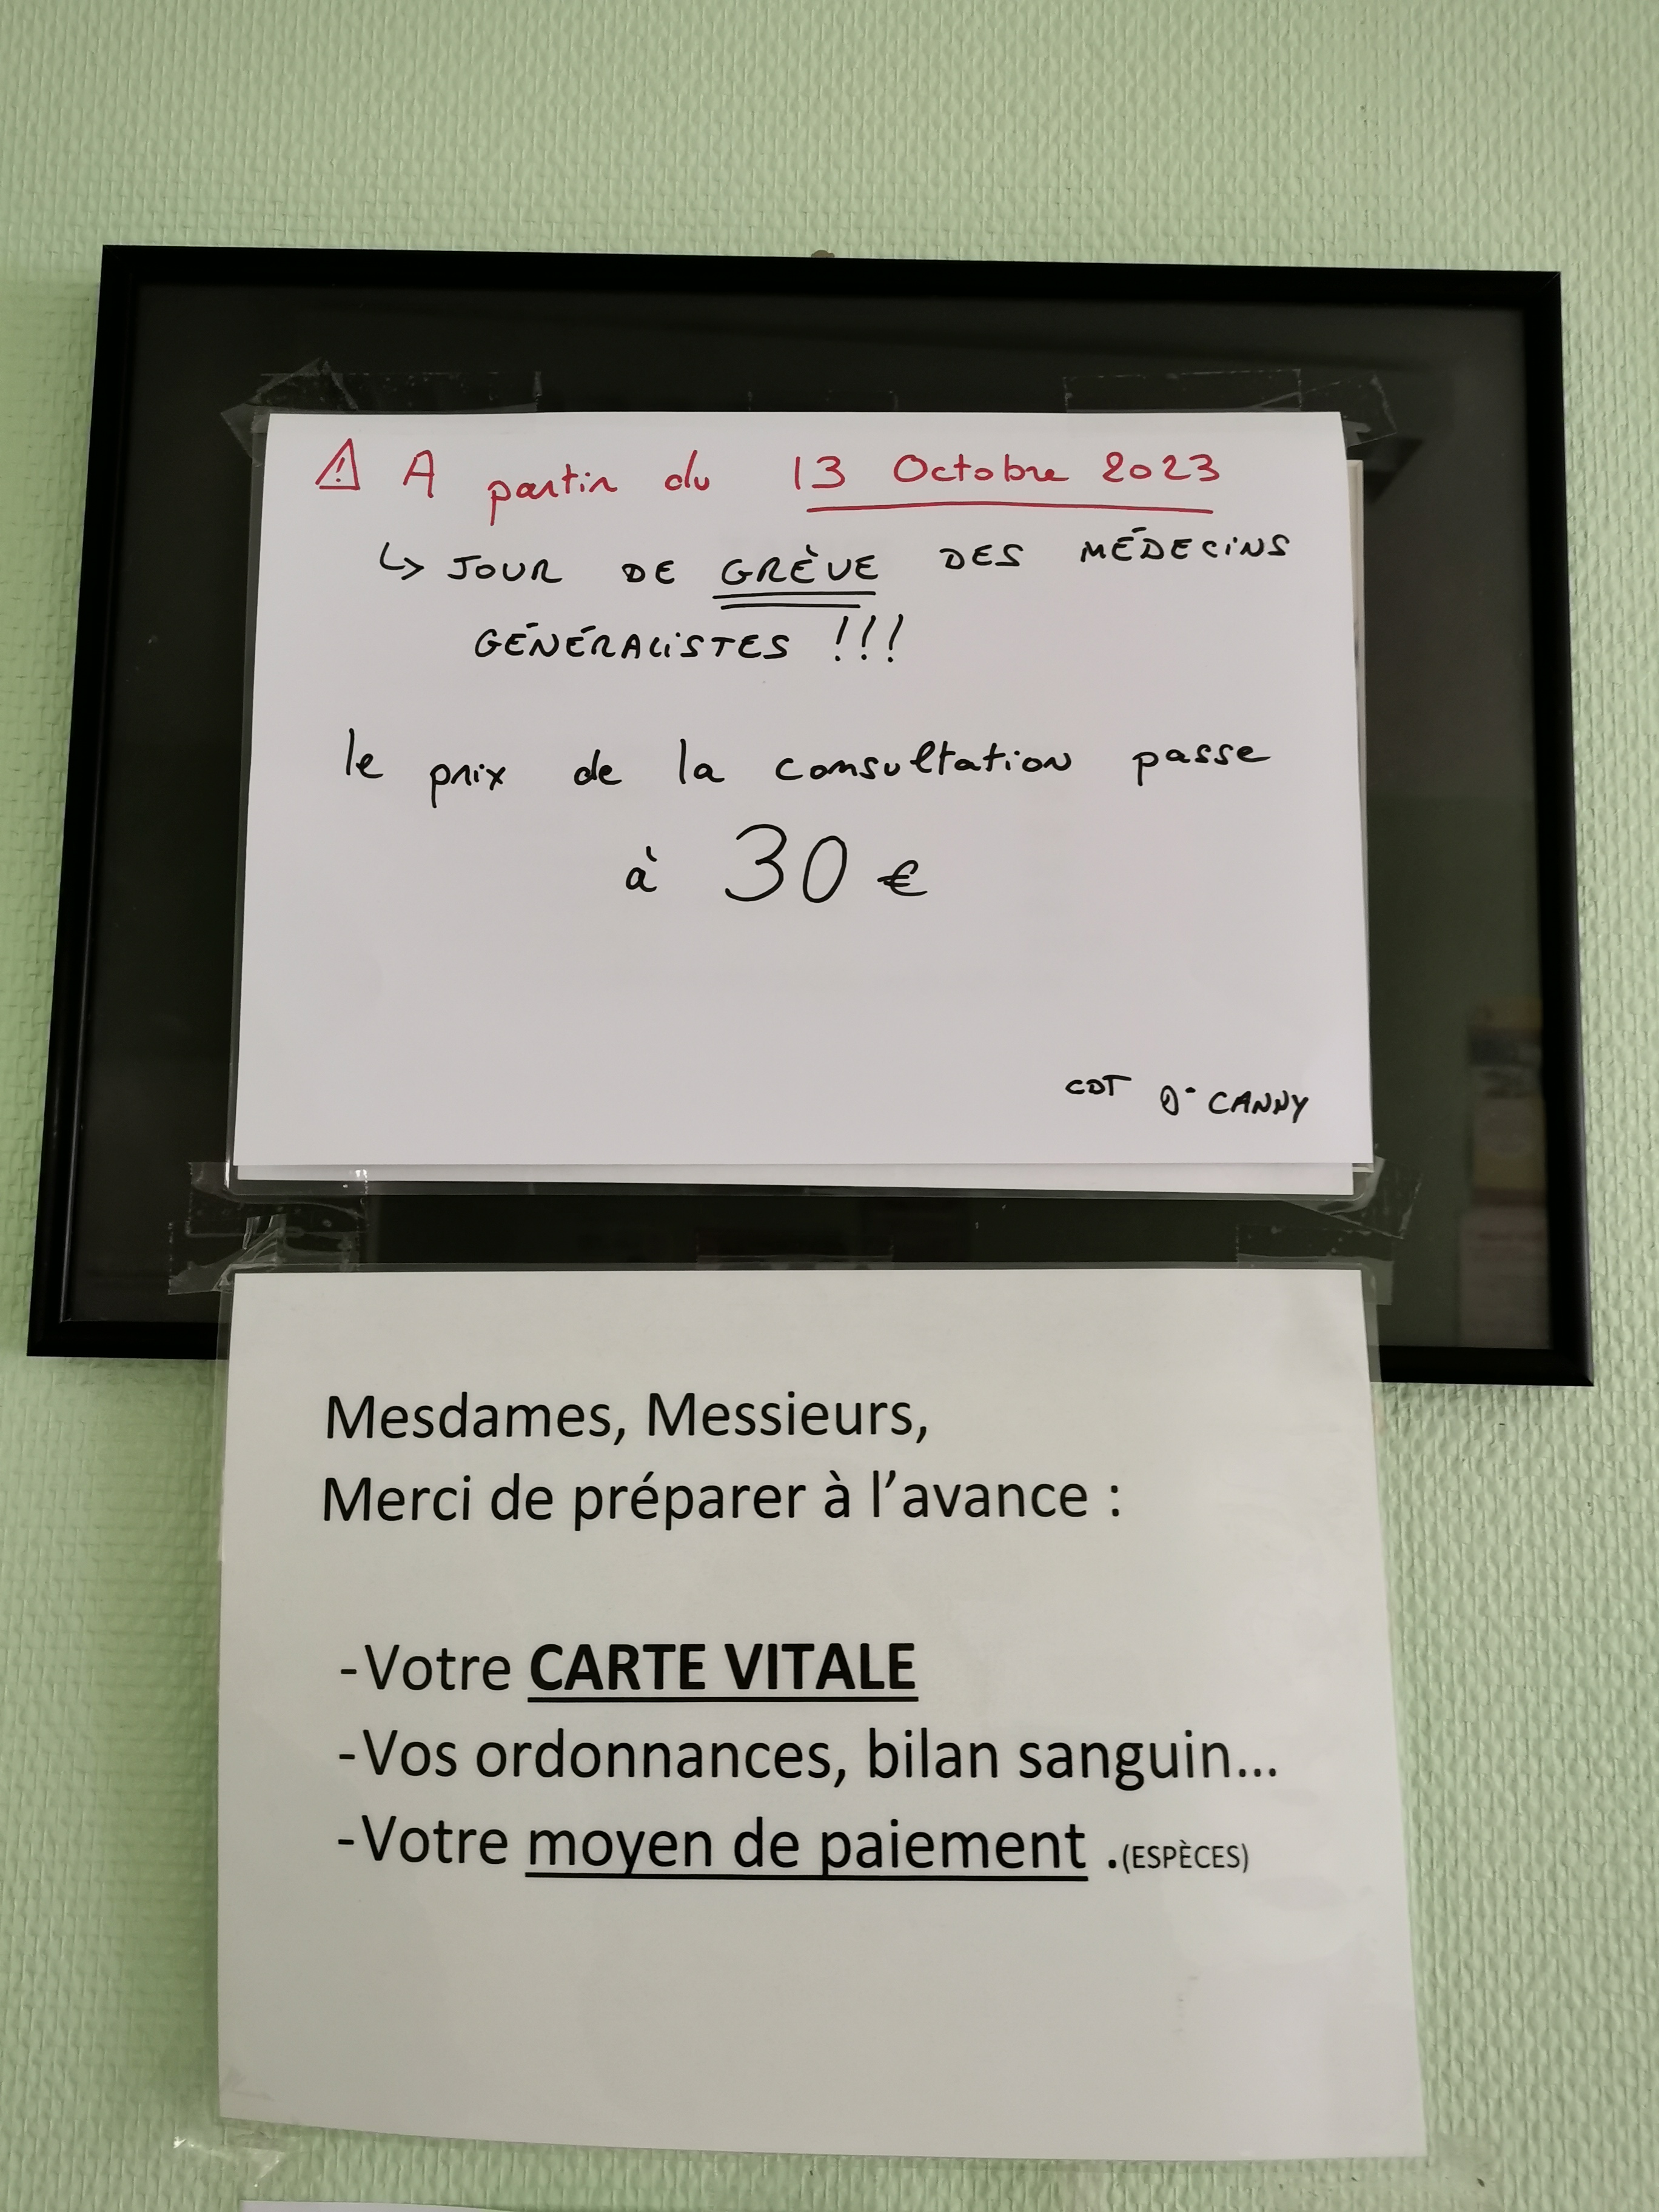 ⚠ A partir du 13 Octobre 2023
↳ JOUR DE GRÈVE DES MÉDECINS
GÉNÉRALISTES !!!
le prix de la consultation passe
à 30 €
CDT
CANNY
Mesdames, Messieurs,
Merci de préparer à l’avance :
-Votre CARTE VITALE
-Vos ordonnances, bilan sanguin...
-Votre moyen de paiement .(ESPÈCES)